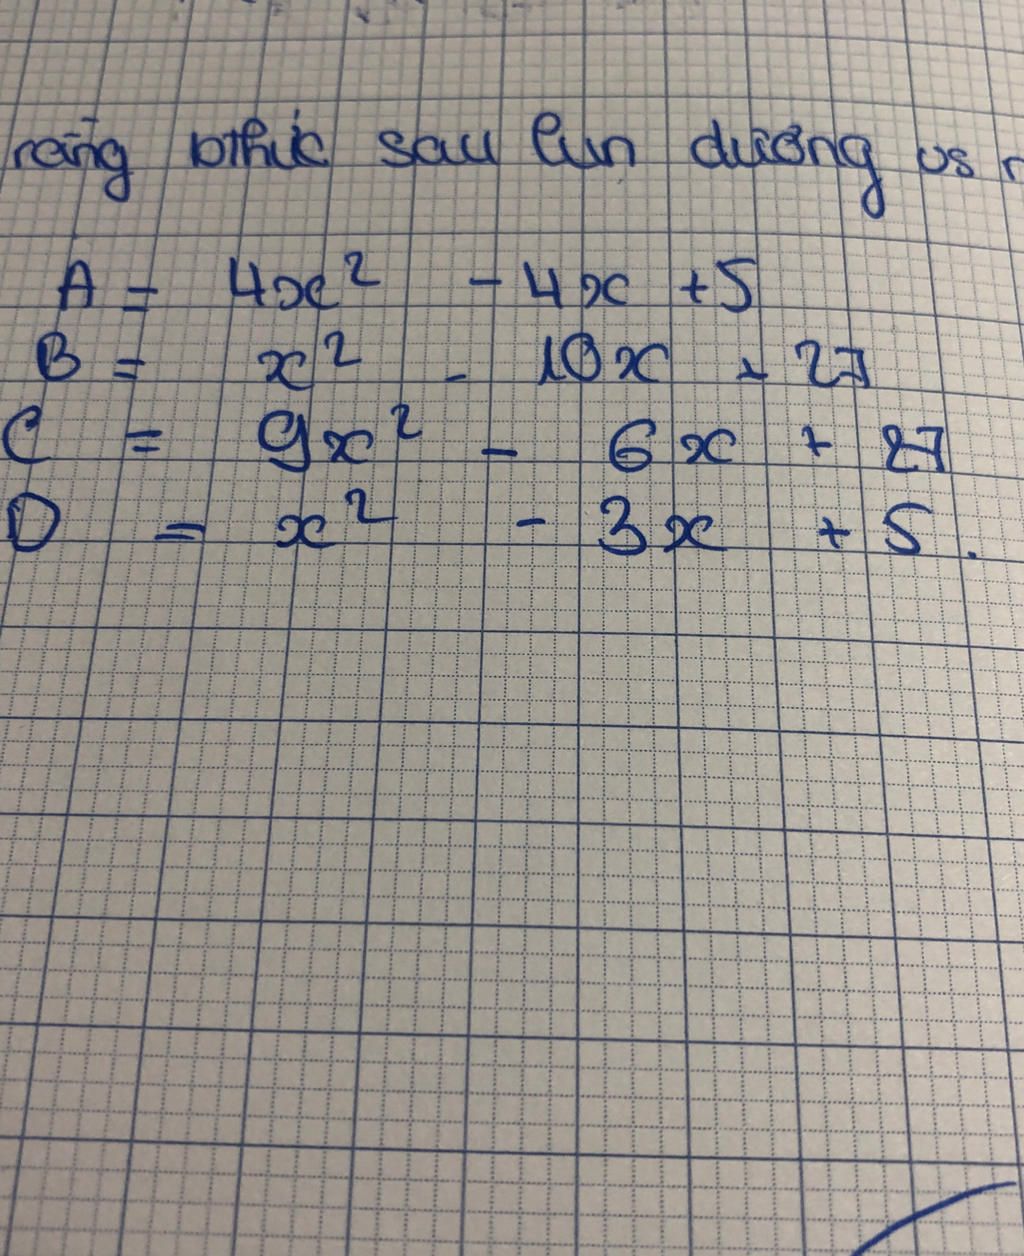 rằng bthức sau lun dương vs
A = 4x² - 4x + 5
B = x² - 10x + 27
C = 9x² - 6x + 27
D = x² - 3x + 5.